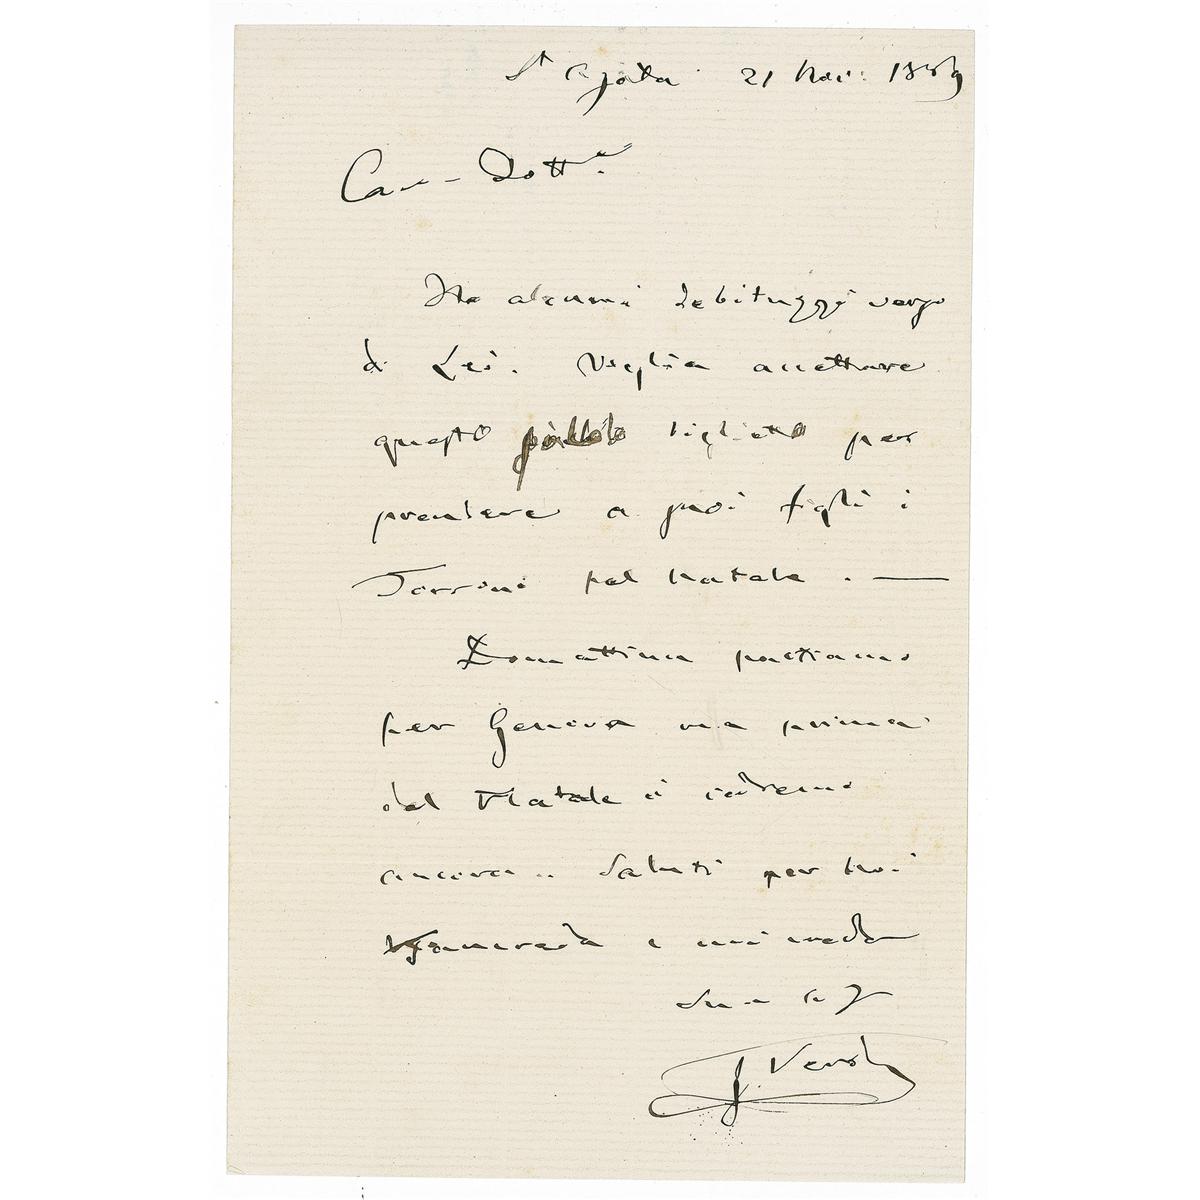 St Agata 21 Nov: 1889
Caro Dottre
Ho alcuni debituzzi verso
di Lei. Voglia accettare
questo piccolo biglietto per
prendere a suoi figli i
Torroni pel Natale. —
Domattina partiamo
per Genova ma prima
del Natale ci vedremo
ancora.. Saluti per noi
e mi creda
Suo
G. Verdi